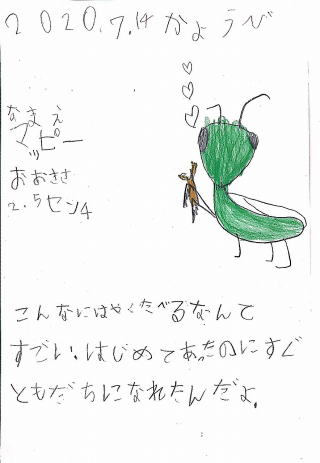 2020.7.14かようび
なまえ
マッピー
おおきさ
2.5センチ
こんなにはやくたべるなんて
すごい。はじめてあったのにすぐ
ともだちになれたんだよ。